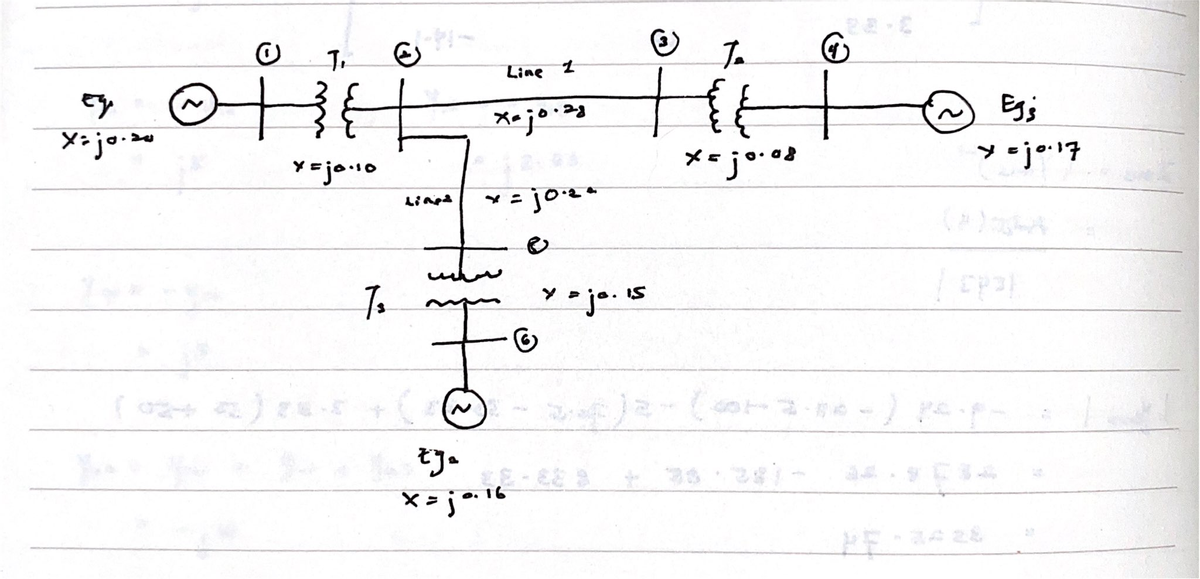 ① T₁ ② Line 1 ③ T₂ ④
Eg₁ ~ ~ Eg₃
X=j0.20 X=j0.10 X=j0.28 X=j0.08 X=j0.17
Line2 X=j0.20
⑤
T₃ X=j0.15
⑥
~
Eg₂
X=j0.16